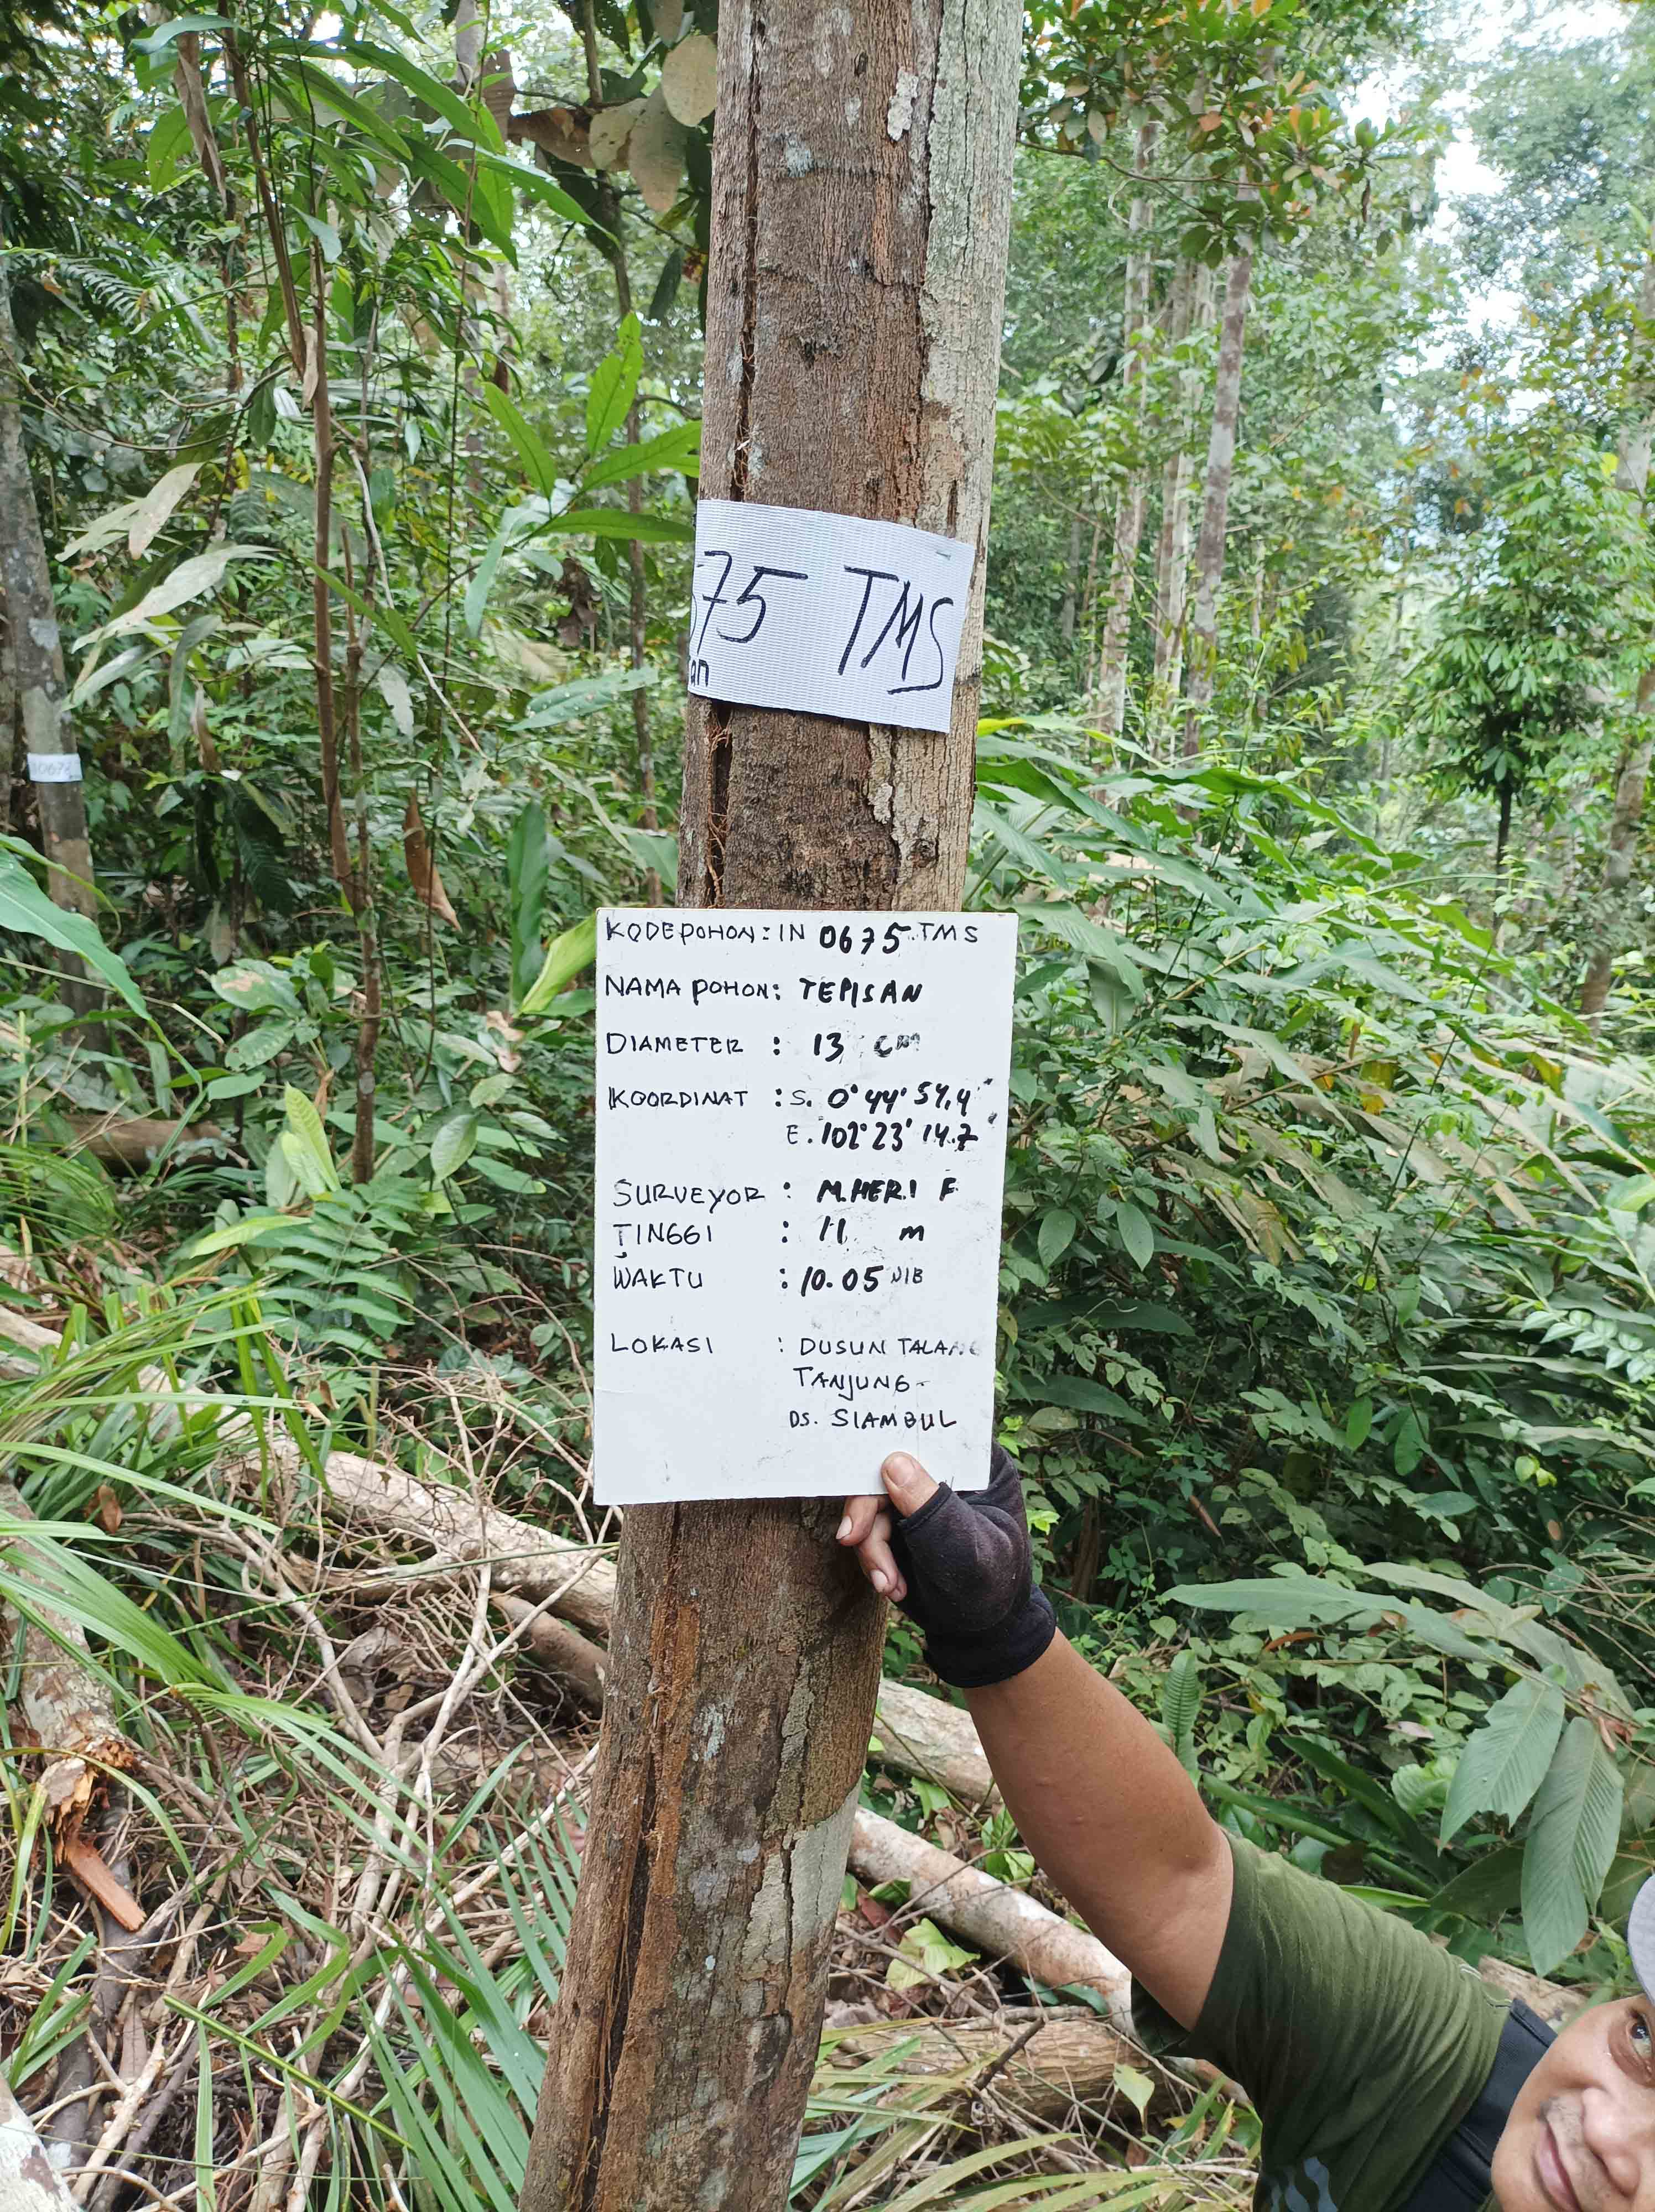 675 TMS
an
KODE POHON : IN 0675 TMS
NAMA POHON : TEPISAN
DIAMETER : 13 CM
KOORDINAT : S. 0° 44' 54,4"
E. 102° 23' 14.7"
SURVEYOR : M.HERI F
TINGGI : 11 m
WAKTU : 10.05 WIB
LOKASI : DUSUN TALANG
TANJUNG -
DS. SIAMBUL